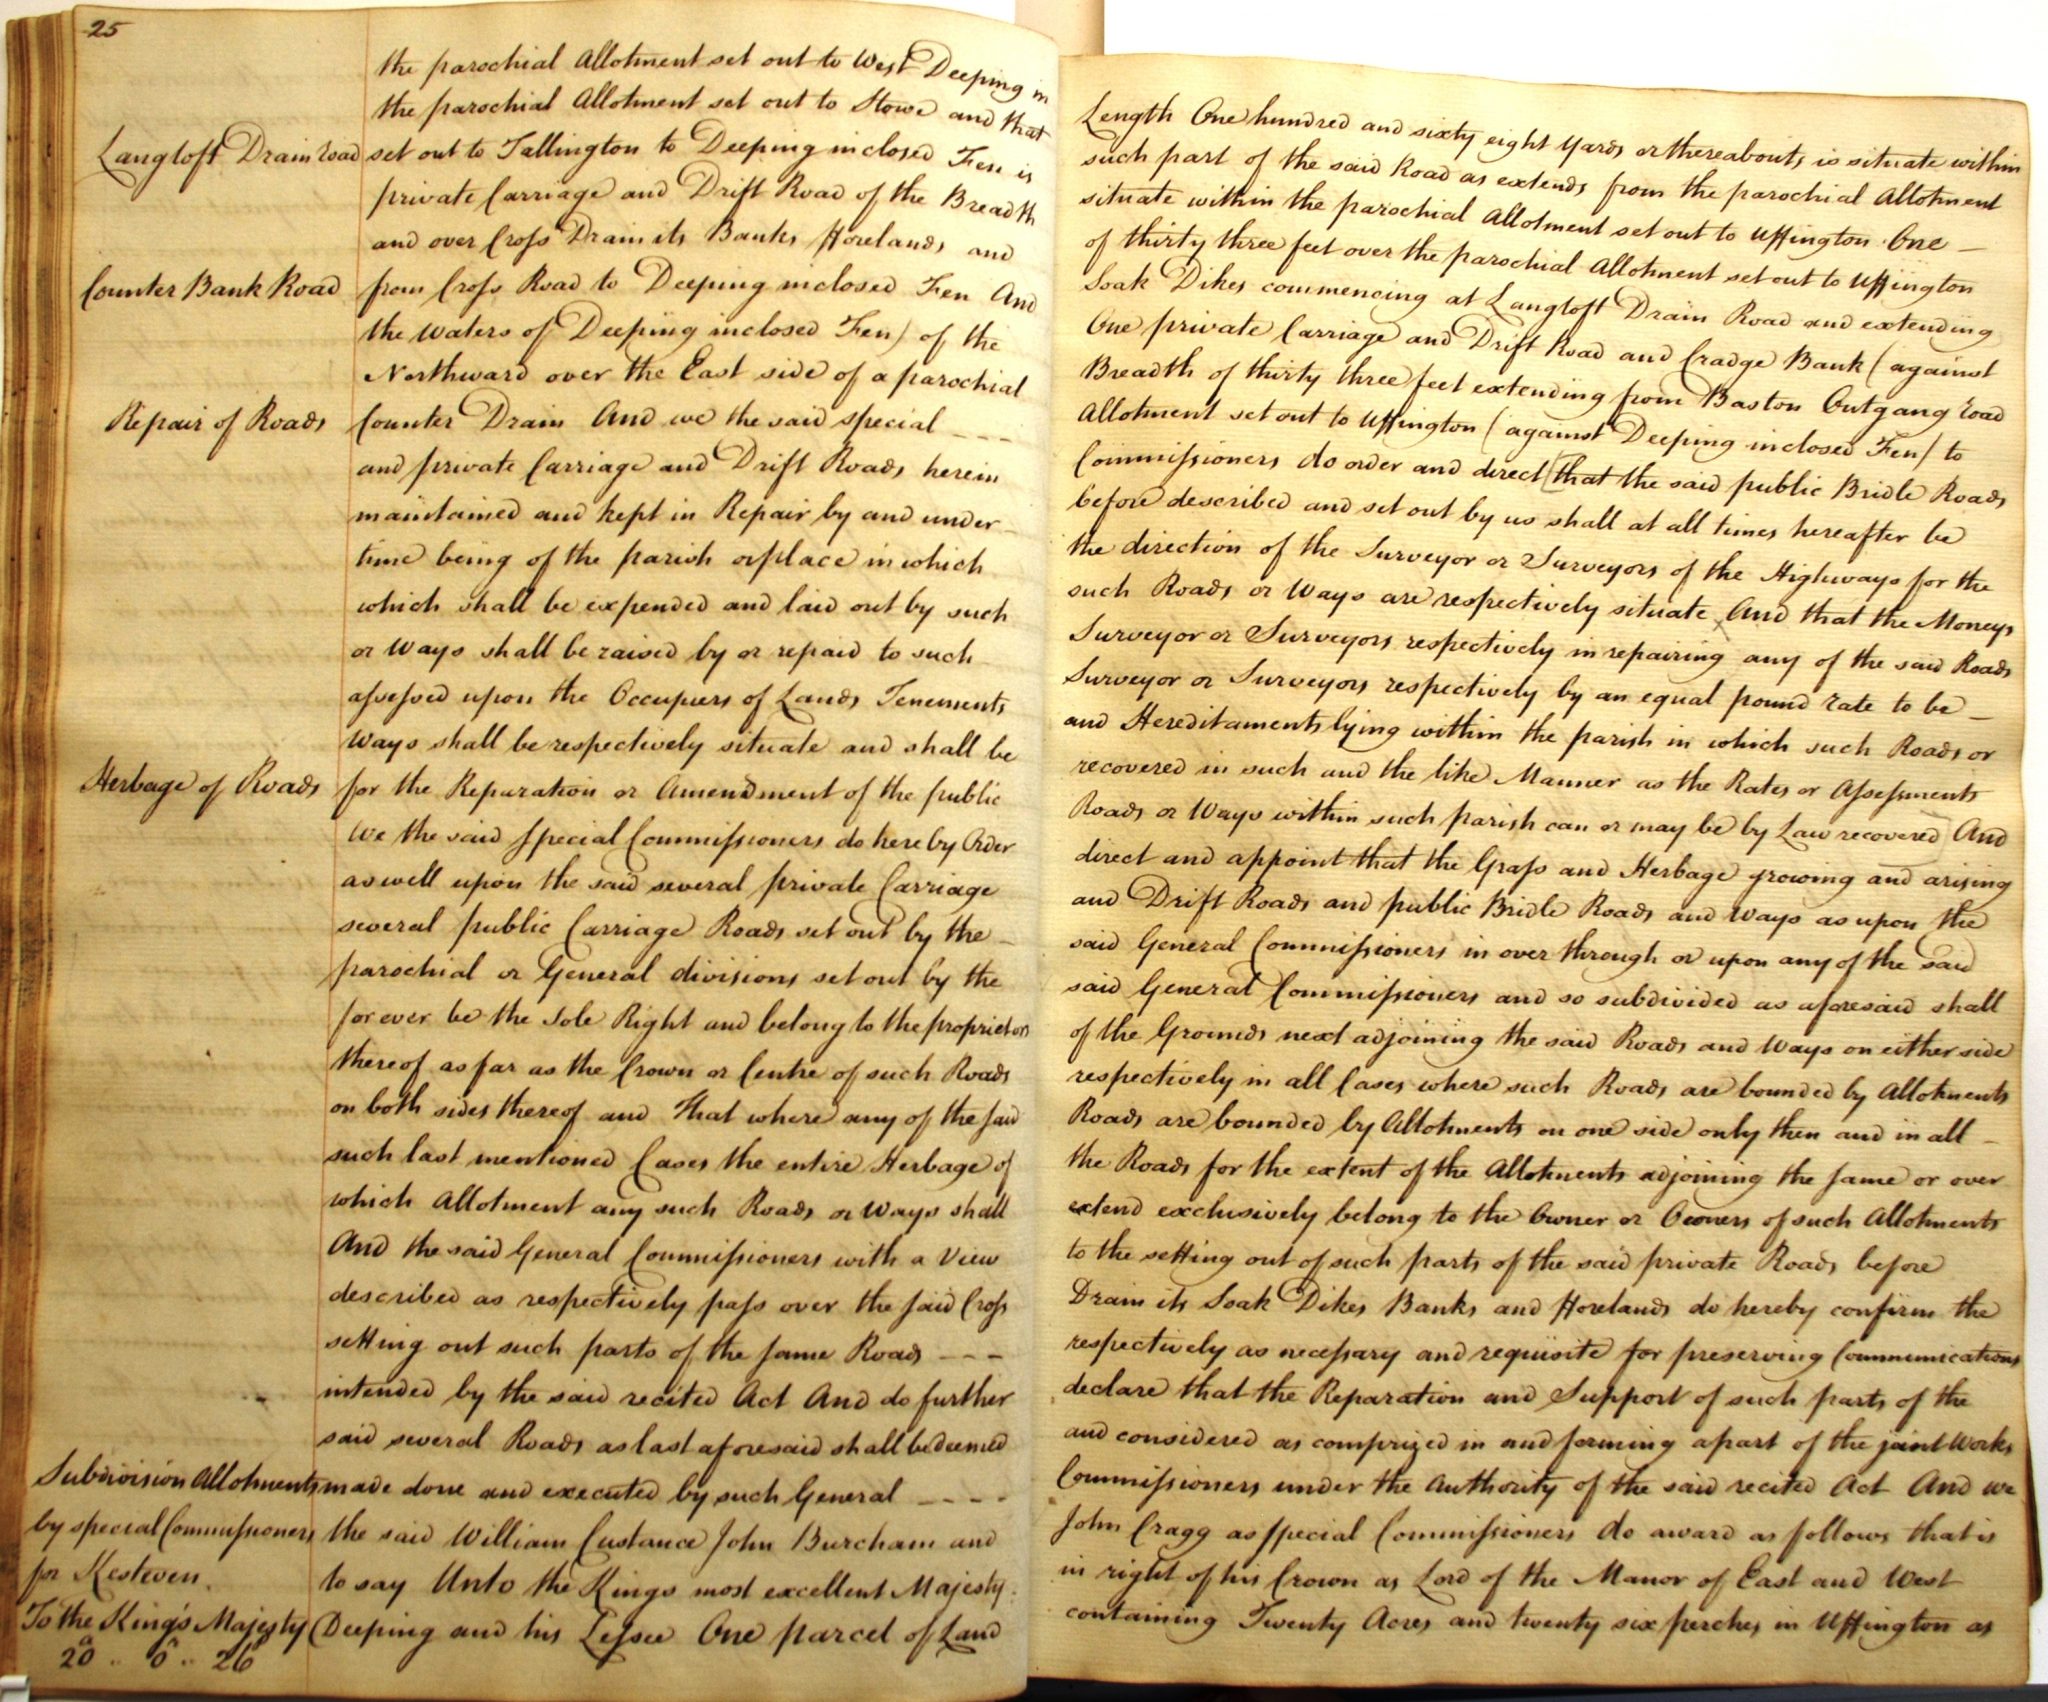 25
the parochial Allotment set out to West Deeping in Length One hundred and sixty eight yards or thereabouts is situate within
the parochial Allotment set out to Stowe and that such part of the said Road as extends from the parochial Allotment
Langtoft Drain road set out to Tallington to Deeping inclosed Fen is situate within the parochial Allotment set out to Uffington One —
private Carriage and Drift Road of the Breadth of thirty three feet over the parochial Allotment set out to Uffington
and over Cross Drain its Banks Forelands and Soak Dikes commencing at Langtoft Drain Road and extending
Counter Bank Road from Cross Road to Deeping inclosed Fen And One private Carriage and Drift Road and Cradge Bank (against
the Waters of Deeping inclosed Fen) of the Breadth of thirty three feet extending from Baston Outgang road
Northward over the East side of a parochial Allotment set out to Uffington (against Deeping inclosed Fen) to
Repair of Roads Counter Drain And we the said special - - - Commissioners do order and direct [that the said public Bridle Roads
and private Carriage and Drift Roads herein before described and set out by us shall at all times hereafter be
maintained and kept in Repair by and under the direction of the Surveyor or Surveyors of the Highways for the
time being of the parish or place in which such Roads or Ways are respectively situate And that the Moneys
which shall be expended and laid out by such Surveyor or Surveyors respectively in repairing any of the said Roads
or Ways shall be raised by or repaid to such Surveyor or Surveyors respectively by an equal pound rate to be —
assessed upon the Occupiers of Lands Tenements and Hereditaments lying within the parish in which such Roads or
Ways shall be respectively situate and shall be recovered in such and the like Manner as the Rates or Assessments
Herbage of Roads for the Reparation or Amendment of the public Roads or Ways within such parish can or may be by Law recovered] And
We the said special Commissioners do hereby Order direct and appoint that the Grass and Herbage growing and arising
as well upon the said several private Carriage and Drift Roads and public Bridle Roads and Ways as upon the
several public Carriage Roads set out by the — said General Commissioners in over through or upon any of the said
parochial or General divisions set out by the said General Commissioners and so subdivided as aforesaid shall
for ever be the sole Right and belong to the proprietors of the Grounds next adjoining the said Roads and Ways on either side
thereof as far as the Crown or Centre of such Roads respectively in all Cases where such Roads are bounded by Allotments
on both sides thereof and That where any of the said Roads are bounded by Allotments on one side only then and in all —
such last mentioned Cases the entire Herbage of the Roads for the extent of the Allotments adjoining the same or over
which Allotment any such Roads or Ways shall extend exclusively belong to the Owner or Owners of such Allotments
And the said General Commissioners with a View to the setting out of such parts of the said private Roads before
described as respectively pass over the said Cross Drain its Soak Dikes Banks and Forelands do hereby confirm the
setting out such parts of the same Roads - - - respectively as necessary and requisite for preserving Communications
intended by the said recited Act And do further declare that the Reparation and Support of such parts of the
said several Roads as last aforesaid shall be deemed and considered as comprized in and forming a part of the joint Works
Subdivision Allotments made done and executed by such General - - - - Commissioners under the Authority of the said recited Act And we
by special Commissioners the said William Custance John Burcham and John Cragg as special Commissioners do award as follows that is
for Kesteven. to say Unto the Kings most excellent Majesty in right of his Crown as Lord of the Manor of East and West
To the King's Majesty Deeping and his Lessee One parcel of Land containing Twenty Acres and twenty six perches in Uffington as
20a .. 0 .. 26